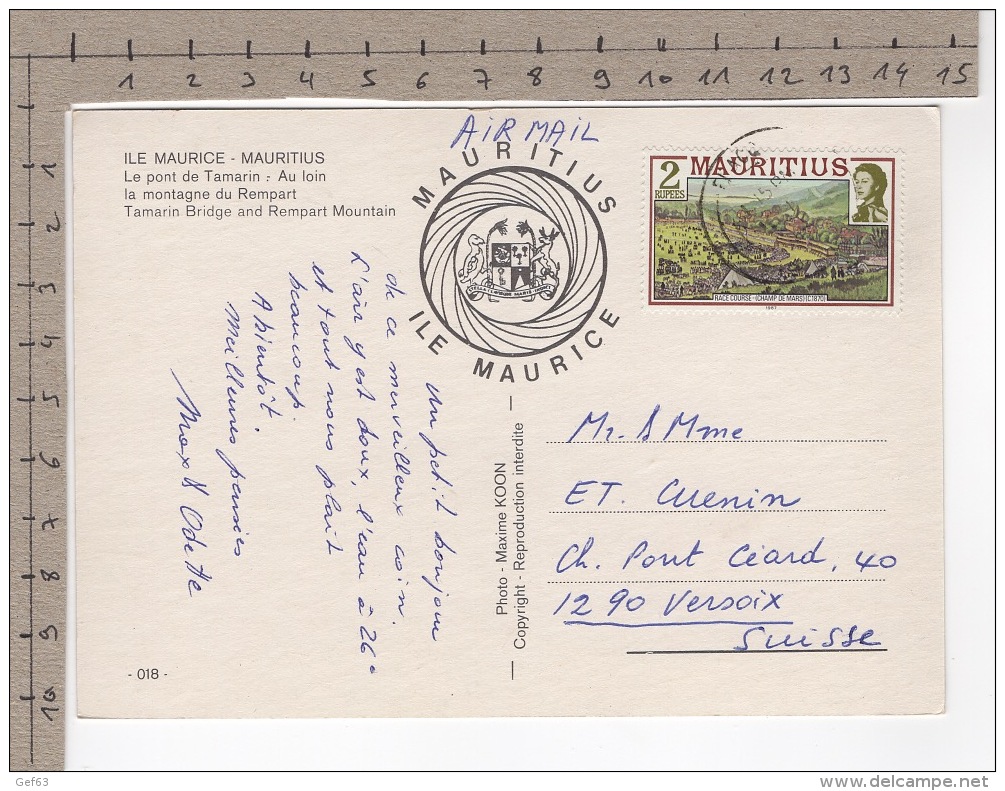 1 2 3 4 5 6 7 8 9 10 11 12 13 14 15
1
2
3
4
5
6
7
8
9
10
AIR MAIL
ILE MAURICE - MAURITIUS
Le pont de Tamarin : Au loin
la montagne du Rempart
Tamarin Bridge and Rempart Mountain
MAURITIUS
ILE MAURICE
2
RUPEES
MAURITIUS
RACE COURSE-(CHAMP DE MARS)(C1870)
1987
Un petit bonjour
de ce merveilleux coin.
L'air y est doux, l'eau à 26°
et tout nous plait
beaucoup.
A bientôt.
Meilleures pensées
Max & Odette
Photo - Maxime KOON
Copyright - Reproduction interdite
Mr. & Mme
ET. Cuenin
Ch. Pont Céard, 40
1290 Versoix
Suisse
- 018 -
Gef63
delcampe.net